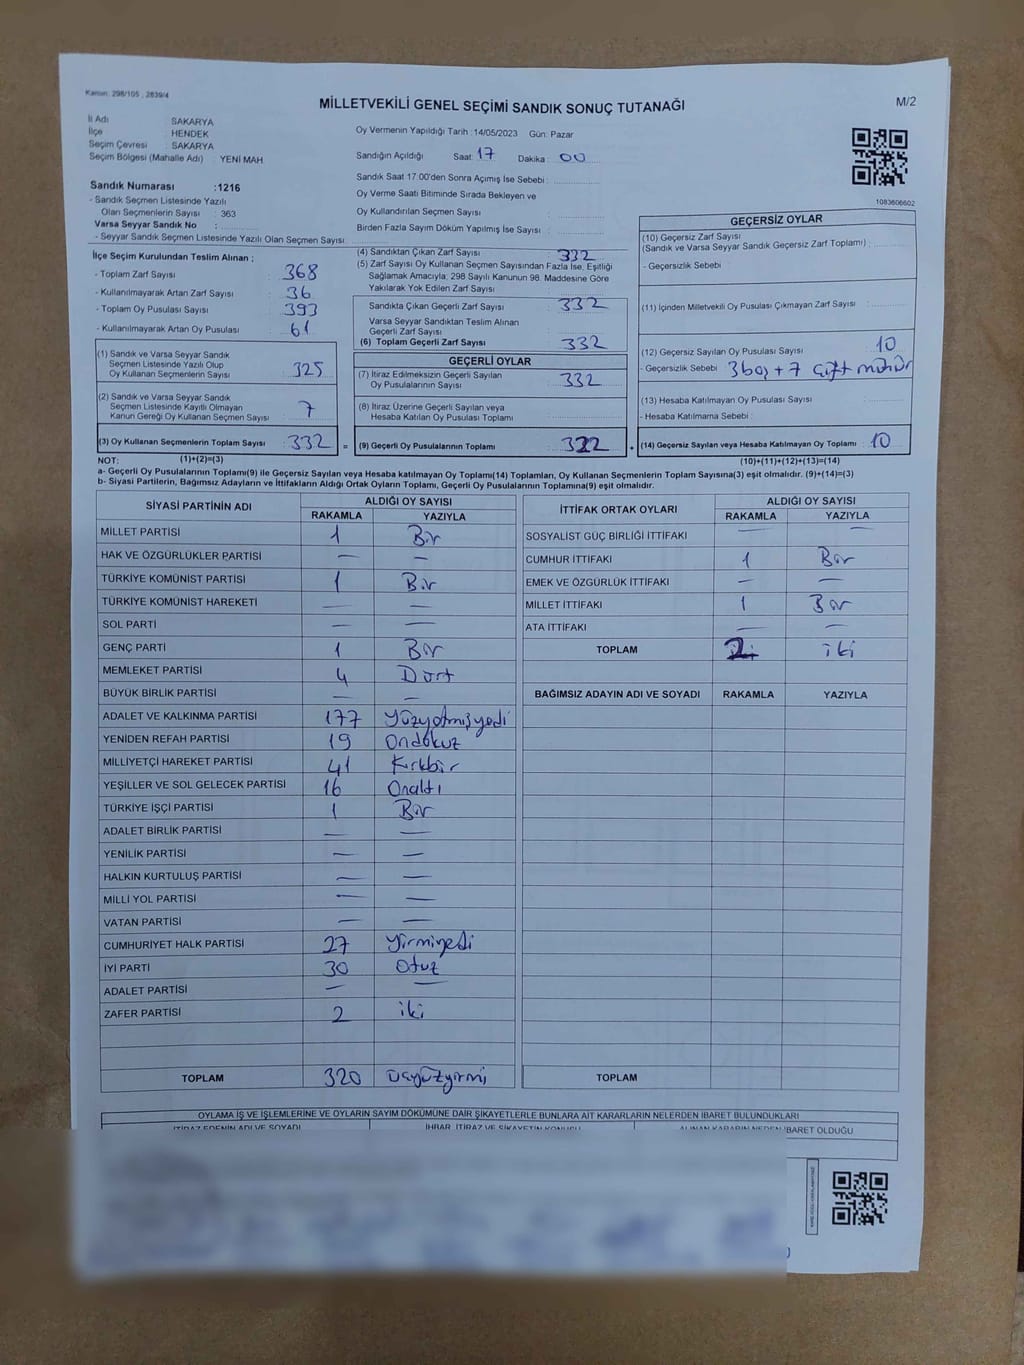 Kanun: 298/105 , 2839/4
MİLLETVEKİLİ GENEL SEÇİMİ SANDIK SONUÇ TUTANAĞI
M/2
İl Adı SAKARYA
İlçe HENDEK
Seçim Çevresi : SAKARYA
Seçim Bölgesi (Mahalle Adı) YENİ MAH.
Sandık Numarası :1216
- Sandık Seçmen Listesinde Yazılı
Olan Seçmenlerin Sayısı : 363
Varsa Seyyar Sandık No :
- Seyyar Sandık Seçmen Listesinde Yazılı Olan Seçmen Sayısı
Oy Vermenin Yapıldığı Tarih :14/05/2023 Gün: Pazar
Sandığın Açıldığı Saat: 17 Dakika : 00
Sandık Saat 17:00'den Sonra Açımış İse Sebebi :
Oy Verme Saati Bitiminde Sırada Bekleyen ve
Oy Kullandırılan Seçmen Sayısı :
Birden Fazla Sayım Döküm Yapılmış İse Sayısı :
1083606602
İlçe Seçim Kurulundan Teslim Alınan ;
- Toplam Zarf Sayısı : 368
- Kullanılmayarak Artan Zarf Sayısı : 36
- Toplam Oy Pusulası Sayısı : 393
- Kullanılmayarak Artan Oy Pusulası : 61
(1) Sandık ve Varsa Seyyar Sandık
Seçmen Listesinde Yazılı Olup
Oy Kullanan Seçmenlerin Sayısı 325
(2) Sandık ve Varsa Seyyar Sandık
Seçmen Listesinde Kayıtlı Olmayan
Kanun Gereği Oy Kullanan Seçmen Sayısı 7
(3) Oy Kullanan Seçmenlerin Toplam Sayısı 332 =
(4) Sandıktan Çıkan Zarf Sayısı 332
(5) Zarf Sayısı Oy Kullanan Seçmen Sayısından Fazla İse, Eşitliği
Sağlamak Amacıyla; 298 Sayılı Kanunun 98. Maddesine Göre
Yakılarak Yok Edilen Zarf Sayısı :
Sandıkta Çıkan Geçerli Zarf Sayısı : 332
Varsa Seyyar Sandıktan Teslim Alınan
Geçerli Zarf Sayısı
(6) Toplam Geçerli Zarf Sayısı 332
GEÇERLİ OYLAR
(7) İtiraz Edilmeksizin Geçerli Sayılan
Oy Pusulalarının Sayısı : 332
(8) İtiraz Üzerine Geçerli Sayılan veya
Hesaba Katılan Oy Pusulası Toplamı :
(9) Geçerli Oy Pusulalarının Toplamı 322 +
GEÇERSİZ OYLAR
(10) Geçersiz Zarf Sayısı
(Sandık ve Varsa Seyyar Sandık Geçersiz Zarf Toplamı) :
- Geçersizlik Sebebi
(11) İçinden Milletvekili Oy Pusulası Çıkmayan Zarf Sayısı :
(12) Geçersiz Sayılan Oy Pusulası Sayısı : 10
- Geçersizlik Sebebi 3 boş + 7 çift mühür
(13) Hesaba Katılmayan Oy Pusulası Sayısı :
- Hesaba Katılmama Sebebi :
(14) Geçersiz Sayılan veya Hesaba Katılmayan Oy Toplamı : 10
NOT: (1)+(2)=(3) (10)+(11)+(12)+(13)=(14)
a- Geçerli Oy Pusulalarının Toplamı(9) ile Geçersiz Sayılan veya Hesaba katılmayan Oy Toplamı(14) Toplamları, Oy Kullanan Seçmenlerin Toplam Sayısına(3) eşit olmalıdır. (9)+(14)=(3)
b- Siyasi Partilerin, Bağımsız Adayların ve İttifakların Aldığı Ortak Oyların Toplamı, Geçerli Oy Pusulalarının Toplamına(9) eşit olmalıdır.
SİYASİ PARTİNİN ADI ALDIĞI OY SAYISI
RAKAMLA YAZIYLA
MİLLET PARTİSİ 1 Bir
HAK VE ÖZGÜRLÜKLER PARTİSİ — —
TÜRKİYE KOMÜNİST PARTİSİ 1 Bir
TÜRKİYE KOMÜNİST HAREKETİ — —
SOL PARTİ — —
GENÇ PARTİ 1 Bir
MEMLEKET PARTİSİ 4 Dört
BÜYÜK BİRLİK PARTİSİ — —
ADALET VE KALKINMA PARTİSİ 177 Yüzyetmişyedi
YENİDEN REFAH PARTİSİ 19 Ondokuz
MİLLİYETÇİ HAREKET PARTİSİ 41 Kırkbir
YEŞİLLER VE SOL GELECEK PARTİSİ 16 Onaltı
TÜRKİYE İŞÇİ PARTİSİ 1 Bir
ADALET BİRLİK PARTİSİ — —
YENİLİK PARTİSİ — —
HALKIN KURTULUŞ PARTİSİ — —
MİLLİ YOL PARTİSİ — —
VATAN PARTİSİ — —
CUMHURİYET HALK PARTİSİ 27 Yirmiyedi
İYİ PARTİ 30 Otuz
ADALET PARTİSİ — —
ZAFER PARTİSİ 2 iki
TOPLAM 320 Üçyüzyirmi
İTTİFAK ORTAK OYLARI ALDIĞI OY SAYISI
RAKAMLA YAZIYLA
SOSYALİST GÜÇ BİRLİĞİ İTTİFAKI — —
CUMHUR İTTİFAKI 1 Bir
EMEK VE ÖZGÜRLÜK İTTİFAKI — —
MİLLET İTTİFAKI 1 Bir
ATA İTTİFAKI — —
TOPLAM 2 iki
BAĞIMSIZ ADAYIN ADI VE SOYADI RAKAMLA YAZIYLA
TOPLAM
OYLAMA İŞ VE İŞLEMLERİNE VE OYLARIN SAYIM DÖKÜMÜNE DAİR ŞİKAYETLERLE BUNLARA AİT KARARLARIN NELERDEN İBARET BULUNDUKLARI
İTİRAZ EDENİN ADI VE SOYADI İHBAR, İTİRAZ VE ŞİKAYETİN KONUSU ALINAN KARARIN NEDEN İBARET OLDUĞU